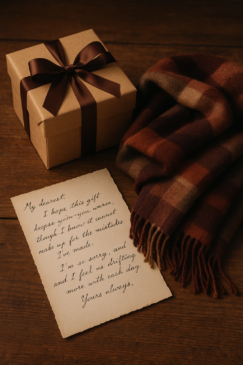 My dearest,
I hope this gift
keeps you-you warm,
though I know it cannot
make up for the mistakes
I've made.
I'm so sorry, and
and I feel us drifting
more with each day.
Yours always,